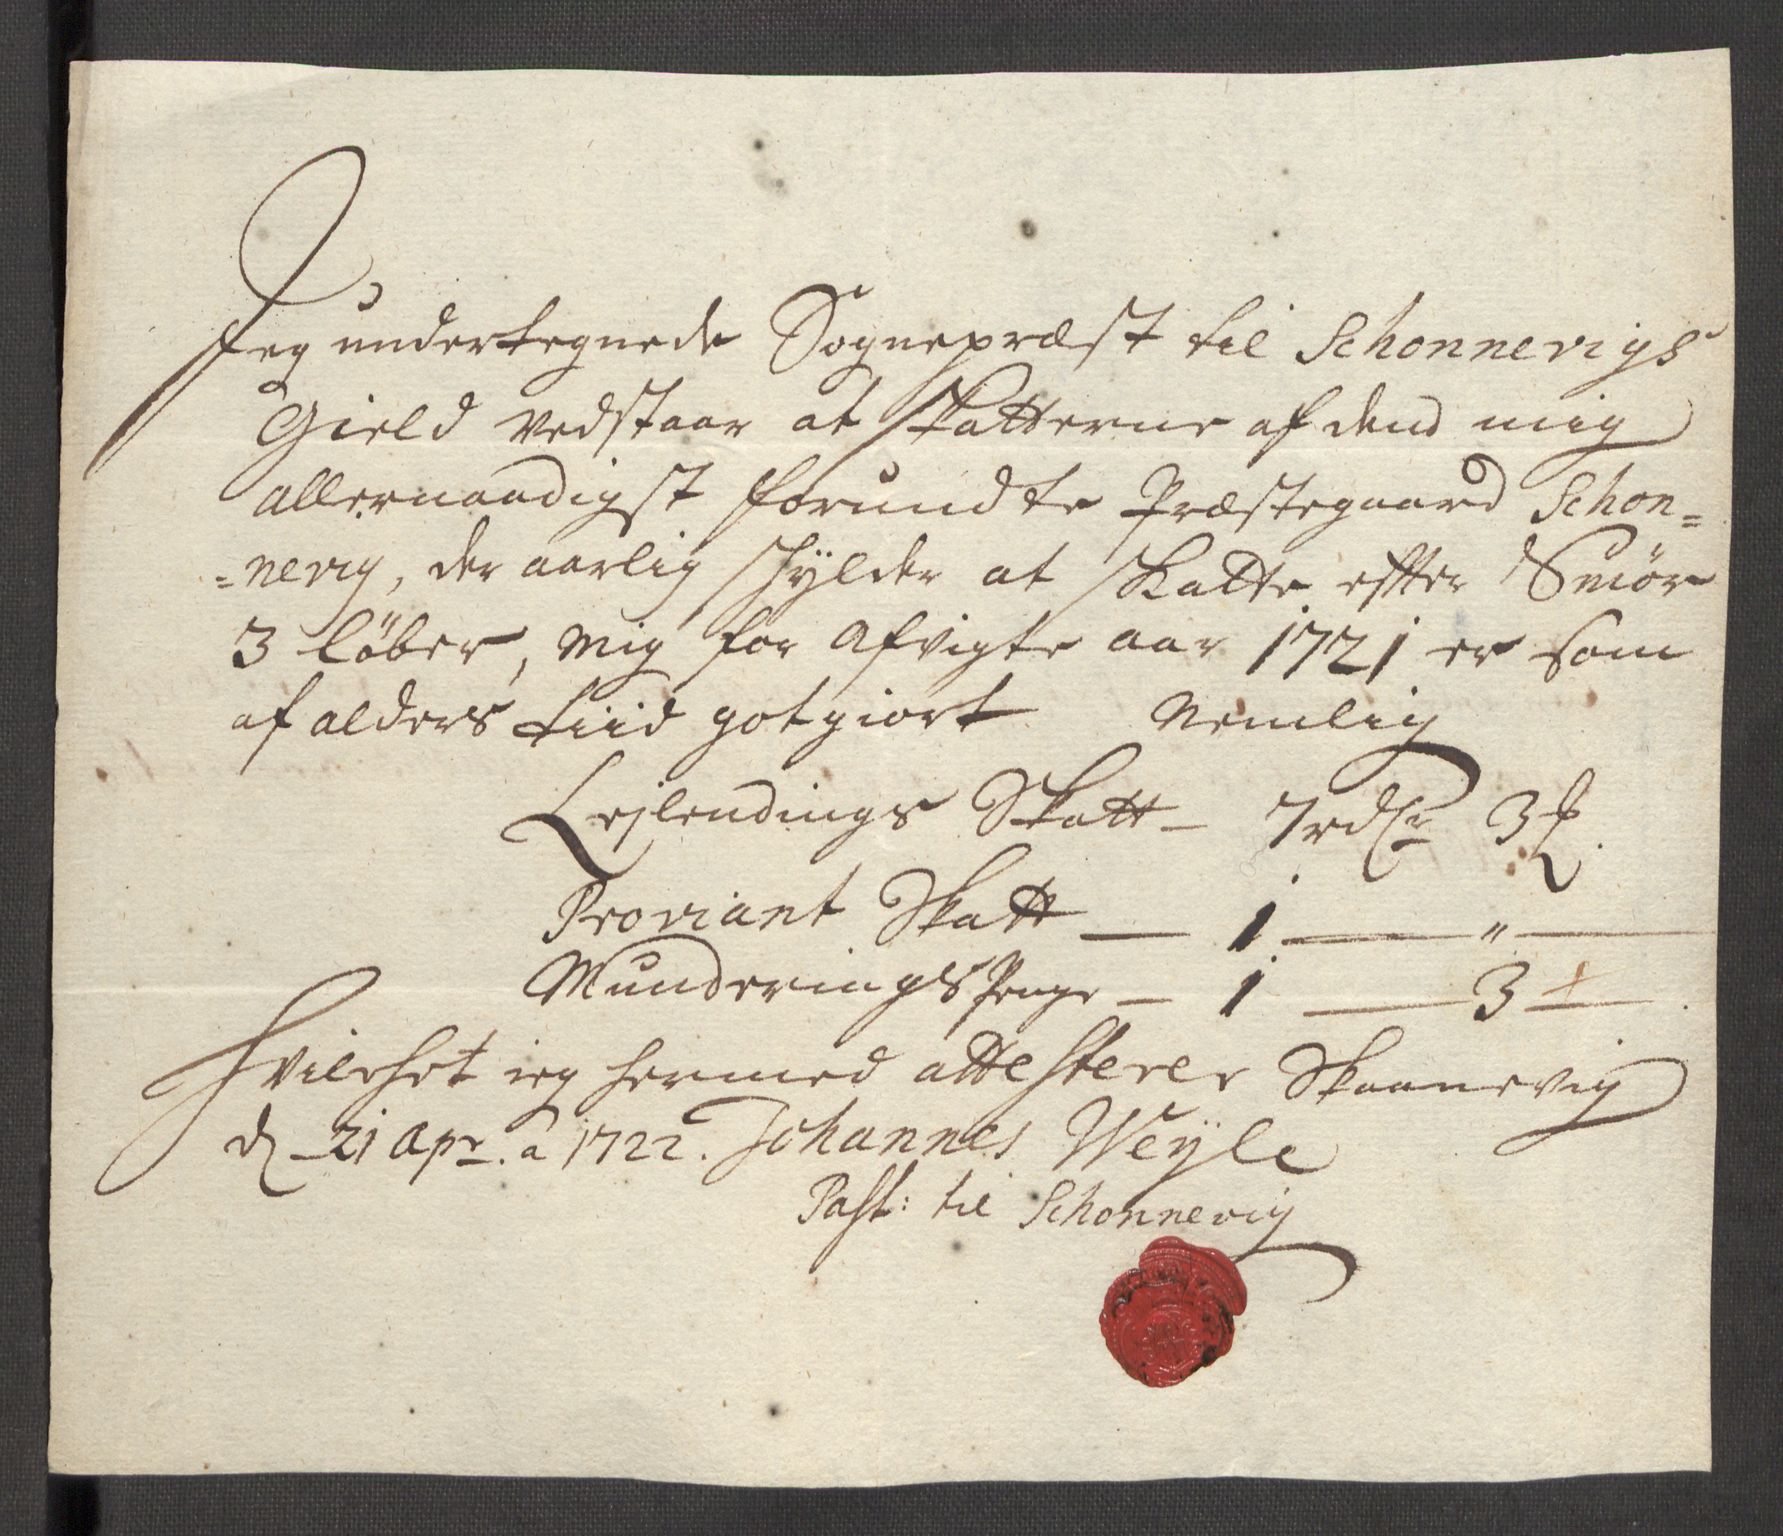 Jeg undertegnede Sognepræst til Schonnevigs
Gield vedstaar at Skatterne af dend mig
allernaadigst forundte Præstegaard Schon=
=nevig, der aarlig schÿlder at Skatte efter Smör
3 löber, mig for afvigte aar 1721 er som
af alders tiid gotgiort Nemlig
Lejlendings Skatt – 7 rdlr 3 ʒ.
Proviant Skatt — 1 — " —
Munderings Penge – 1 — 3 –
Hvilchet ieg hermed attesterer Skaanevig
d 21 Apr. a 1722. Johannes Weÿle
Past: til Schonnevig